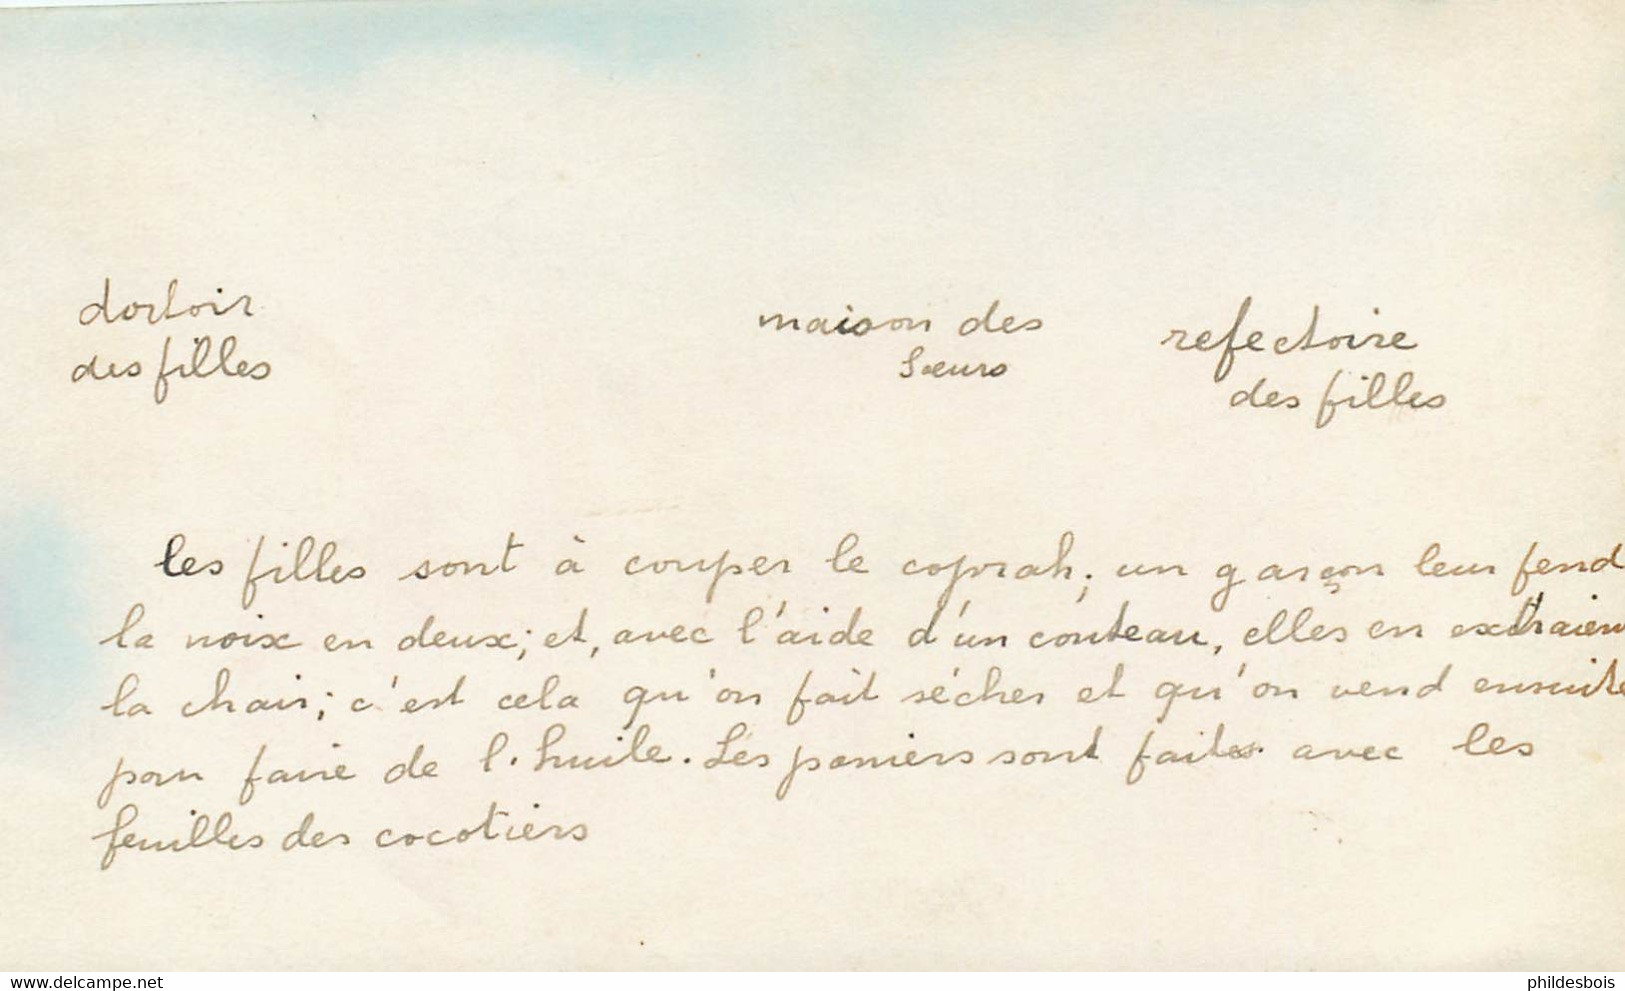 dortoir
des filles
maison des
Sœurs
refectoire
des filles
les filles sont à couper le coprah; un garçon leur fend
la noix en deux; et, avec l'aide d'un couteau, elles en extraient
la chair; c'est cela qu'on fait sécher et qu'on vend ensuite
pour faire de l'huile. Les paniers sont faites avec les
feuilles des cocotiers
delcampe.net
phildesbois